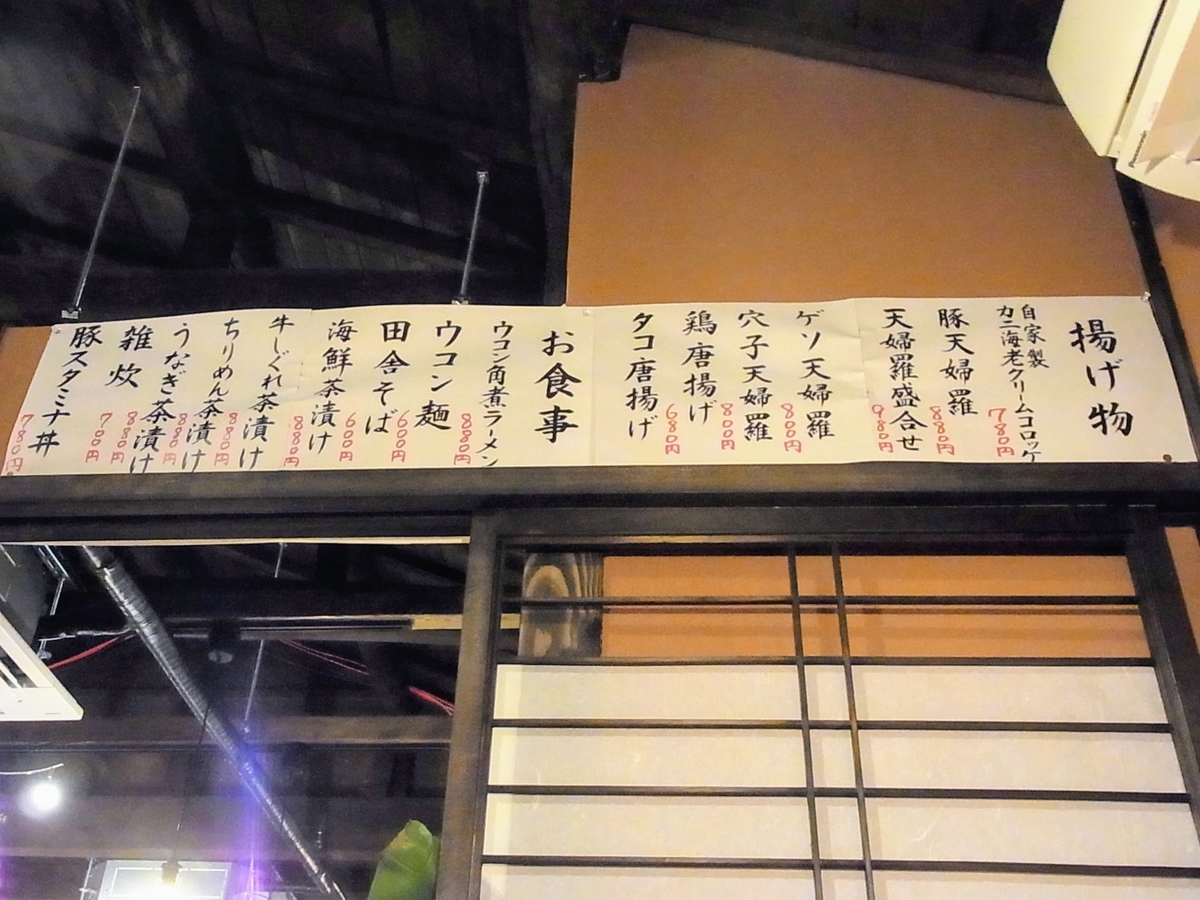 揚げ物
自家製
カニ海老クリームコロッケ
780円
豚天婦羅
880円
天婦羅盛合せ
980円
ゲソ天婦羅
800円
穴子天婦羅
800円
鶏唐揚げ
680円
タコ唐揚げ
お食事
ウコン角煮ラーメン
880円
ウコン麺
600円
田舎そば
600円
海鮮茶漬け
880円
牛しぐれ茶漬け
880円
ちりめん茶漬け
880円
うなぎ茶漬け
880円
雑炊
700円
豚スタミナ丼
780円
Panasonic